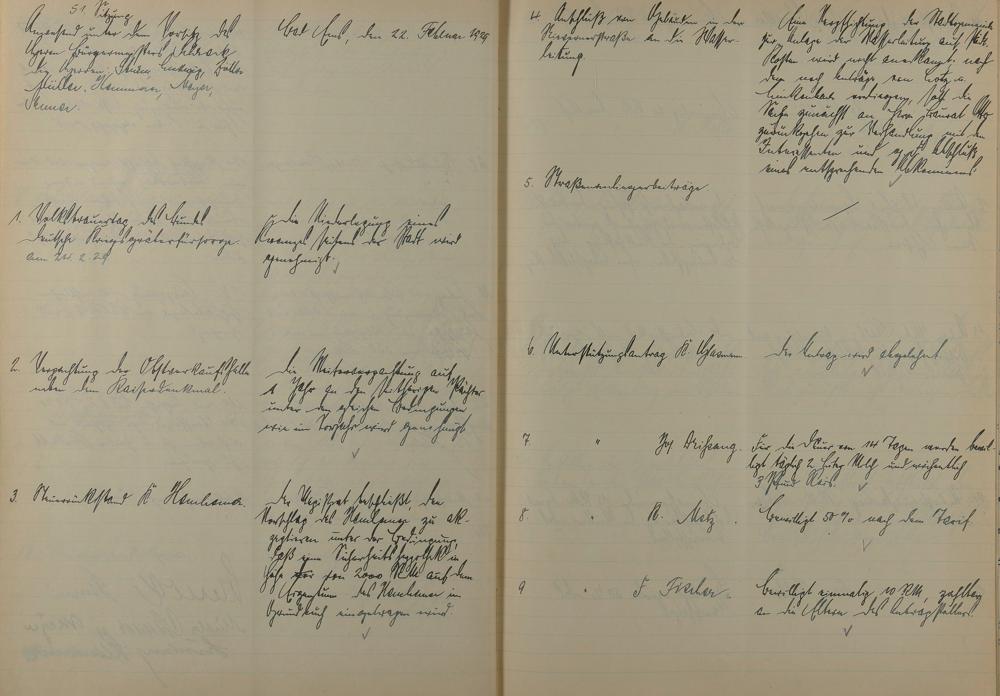 51. Sitzung
Anwesend unter dem Vorsitz des
Herrn Bürgermeisters
die Herren: Ludwig,
Müller, Hammer, Meyer,
Bad Ems, den 22. Februar 1929
1. Volkstrauertag des Bundes
deutsche Kriegsgräberfürsorge
am 24. 2. 29
Die Niederlegung eines
Kranzes seitens der Stadt wird
genehmigt.
2. Verpachtung der Obstverkaufshalle
neben dem Kaiserdenkmal.
Die Weiterverpachtung auf
1 Jahr an den seitherigen Pächter
unter den gleichen Bedingungen
wie im Vorjahr wird genehmigt
3. Steuerrückstand K.
Der Magistrat beschließt, den
Vorschlag des zu ak-
zeptieren unter der Bedingung,
daß eine Sicherheitshypothek in
Höhe von 2000 RM auf dem
Eigentum des im
Grundbuch eingetragen wird
4. Anschluß von Gebäuden in der
an die Wasser-
leitung.
Eine Verpflichtung der Stadtgemeinde
zur Anlage der Wasserleitung auf städt.
Kosten wird nicht anerkannt; nach
dem noch Anträge von Lotz u.
vorliegen, soll die
Sache zunächst an Herrn Baurat
zurückgehen zur Verhandlung mit den
Interessenten und Abschluß
eines entsprechenden Abkommens
5. Straßenanliegerbeiträge.
6. Unterstützungsantrag K.
Der Antrag wird abgelehnt
7. " Jos.
Für die Dauer von 14 Tagen werden bewil-
ligt täglich 2 Liter Milch und wöchentlich
3 Pfund Reis.
8. " B. Metz.
Bewilligt 50 % nach dem Tarif
9 " F. Fischer.
Bewilligt einmalig 10 RM, zahlbar
an die Eltern des Antragstellers.